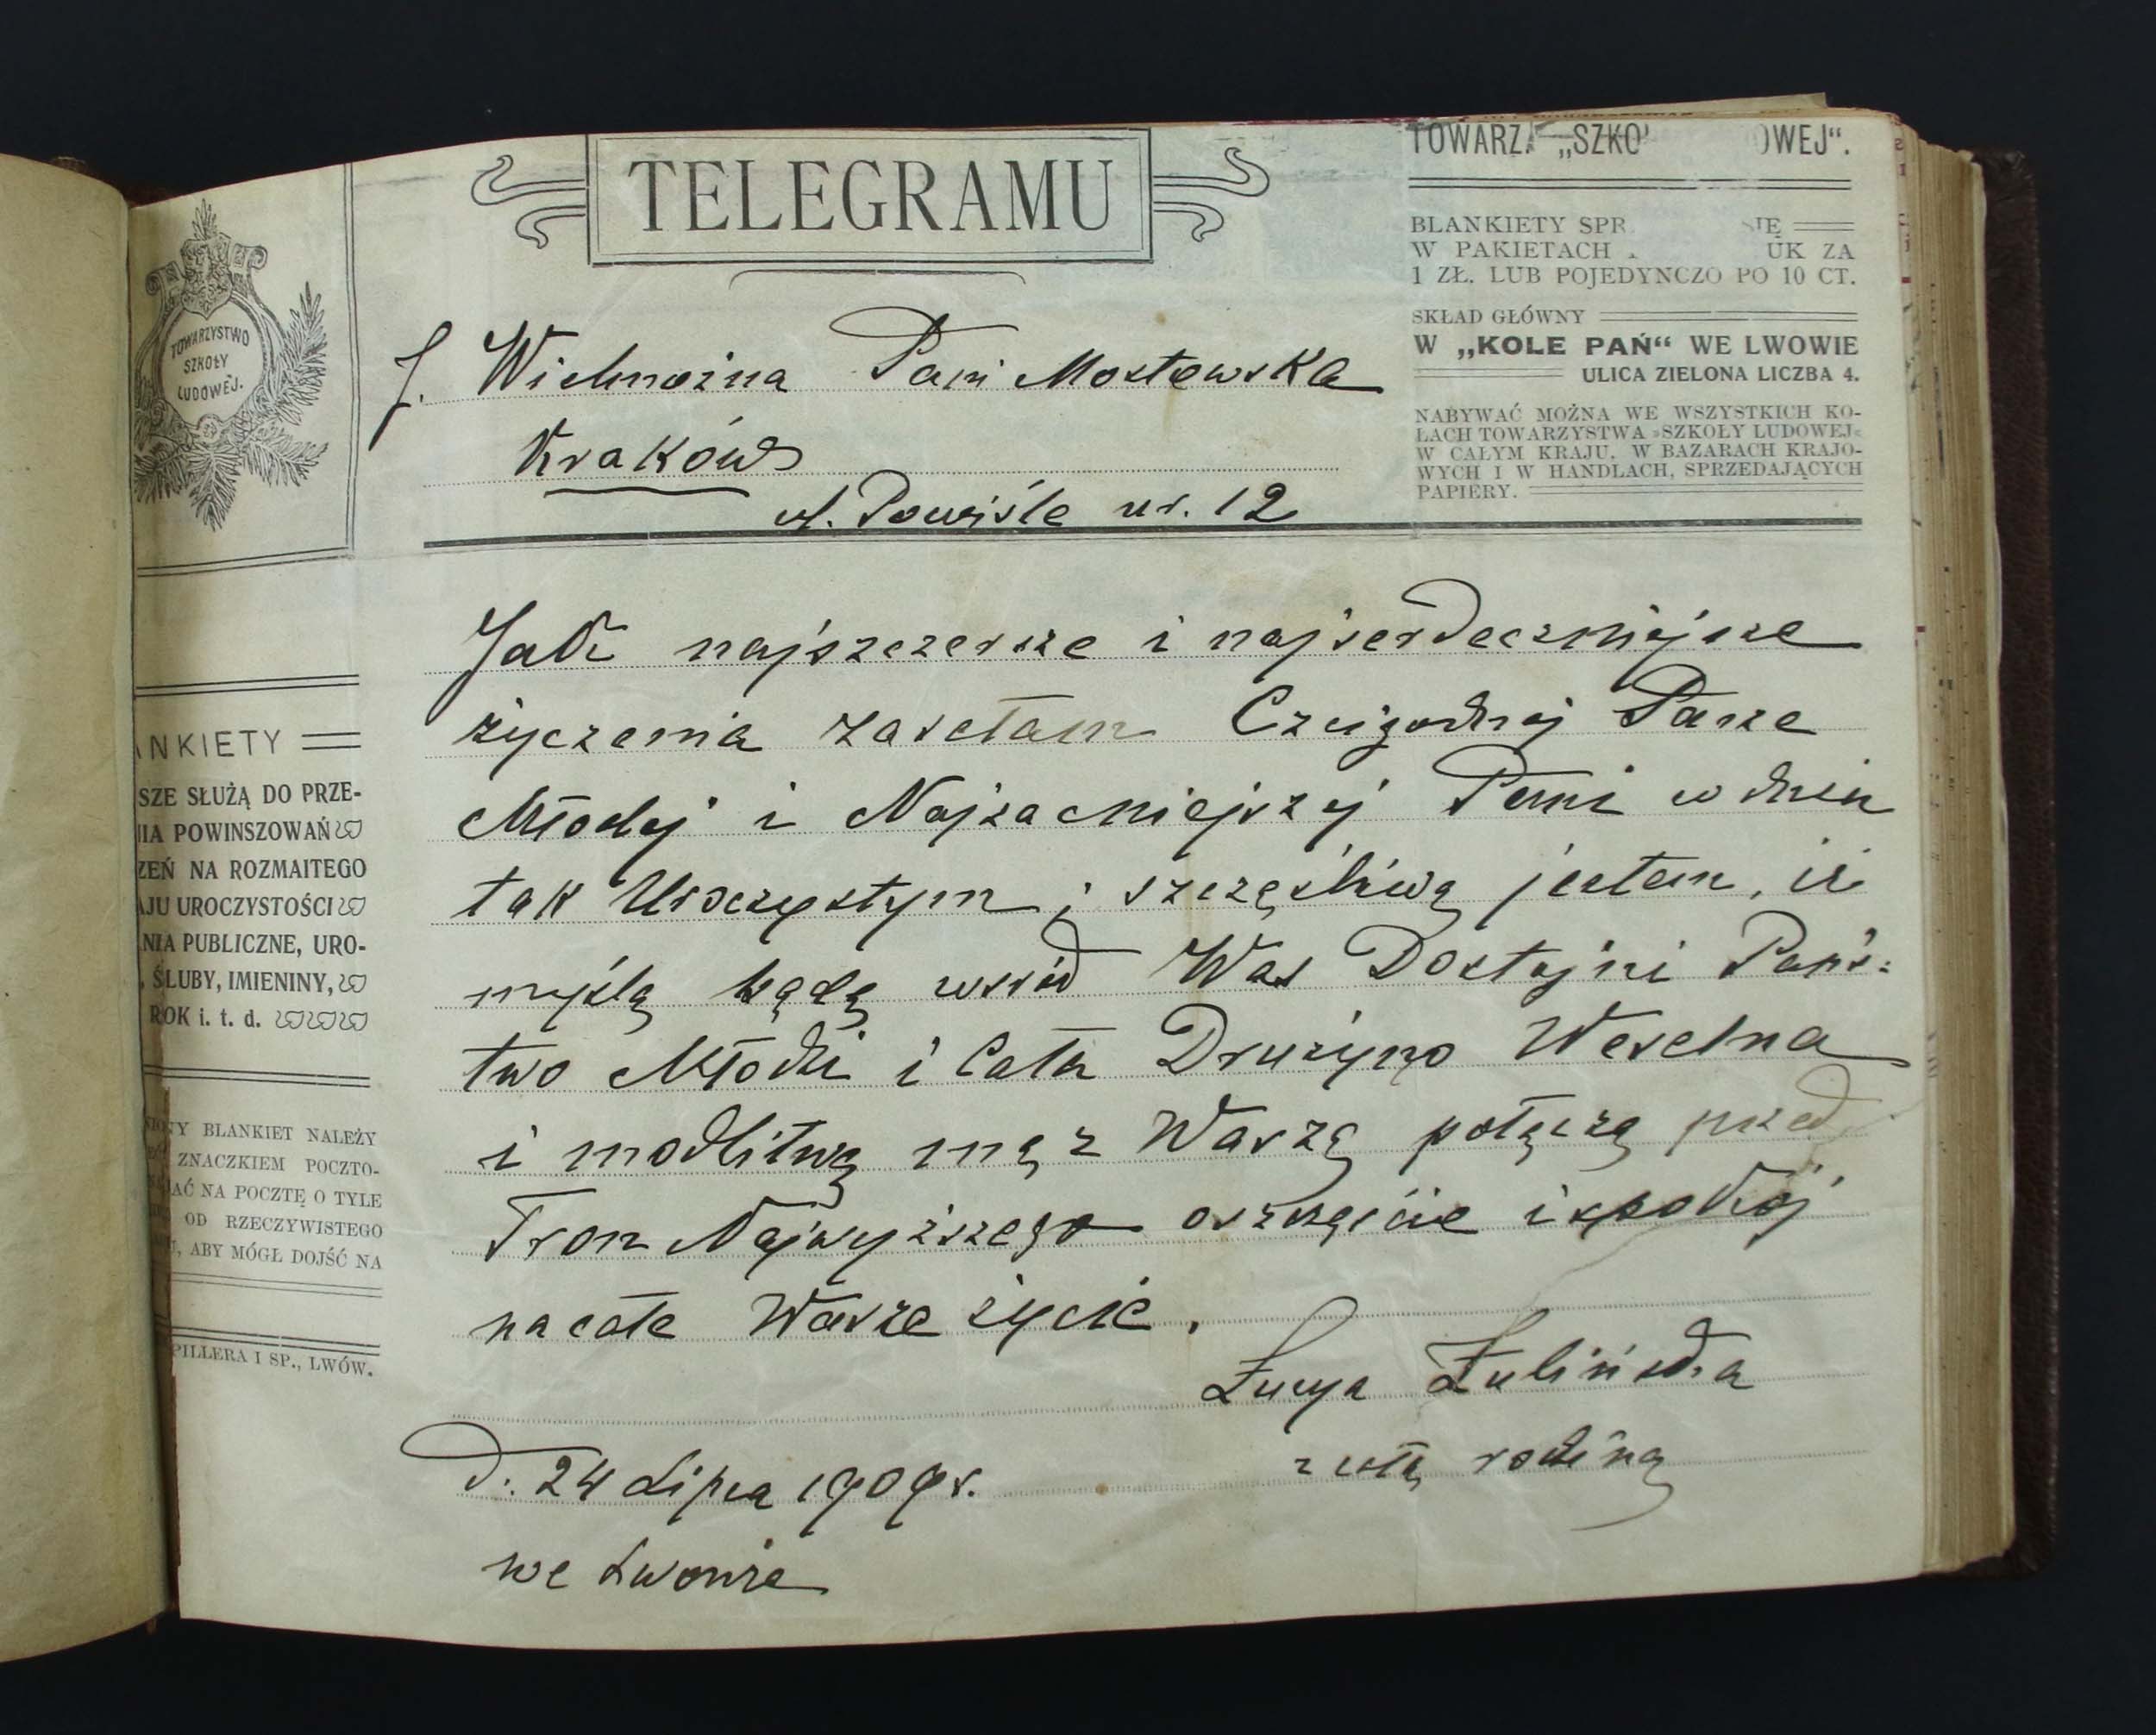 TELEGRAMU
TOWARZ. „SZKO OWEJ“.
BLANKIETY SPR SIĘ
W PAKIETACH UK ZA
1 ZŁ. LUB POJEDYNCZO PO 10 CT.
SKŁAD GŁÓWNY
W „KOLE PAŃ“ WE LWOWIE
ULICA ZIELONA LICZBA 4.
NABYWAĆ MOŻNA WE WSZYSTKICH KO-
ŁACH TOWARZYSTWA »SZKOŁY LUDOWEJ«
W CAŁYM KRAJU, W BAZARACH KRAJO-
WYCH I W HANDLACH, SPRZEDAJĄCYCH
PAPIERY.
TOWARZYSTWO
SZKOŁY
LUDOWEJ.
NKIETY
SZE SŁUŻĄ DO PRZE-
IA POWINSZOWAŃ
ZEŃ NA ROZMAITEGO
AJU UROCZYSTOŚCI
NIA PUBLICZNE, URO-
, ŚLUBY, IMIENINY,
ROK i. t. d.
NY BLANKIET NALEŻY
ZNACZKIEM POCZTO-
AĆ NA POCZTĘ O TYLE
OD RZECZYWISTEGO
U, ABY MÓGŁ DOJŚĆ NA
PILLERA I SP., LWÓW.
J. Wielmożna Pani Mostowska
Kraków
ul. Powiśle nr. 12
Jak najszczersze i najserdeczniejsze
życzenia zasełam Czcigodnej Parze
Młodej i Najzacniejszej Pani w dniu
tak Uroczystym i szczęśliwą jestem, iż
myślą będę wśród Was Dostojni Pańs:
two Młodzi i Cała Drużyno Weselna
i modlitwę mą z Waszą połączę przed
Tron Najwyższego o szczęście i spokój
na całe Wasze życie.
Łucya Żulińska
z całą rodziną
D: 24 Lipca 1909 r.
we Lwowie